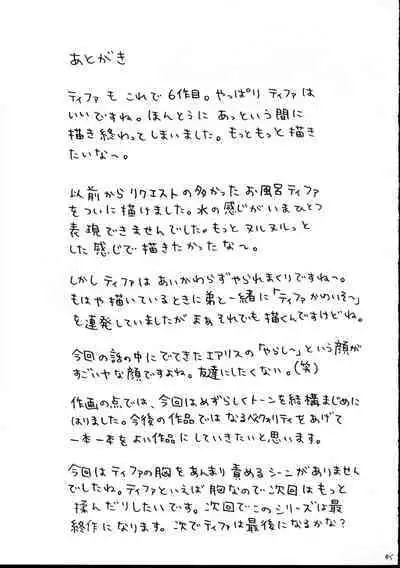 あとがき
ティファも これで 6作目。やっぱり ティファは
いいですね。ほんとうに あっという間に
描き終わってしまいました。もっともっと描き
たいな〜。
以前からリクエストの多かった お風呂ティファ
をついに描けました。水の感じがいまひとつ
表現できませんでした。もっと ヌルヌルっと
した感じで描きたかったな〜。
しかし ティファは あいかわらず やられまくりですね〜。
もはや描いているときに弟と一緒に「ティファかわいそ〜」
を連発していましたが まぁそれでも描くんですけどね。
今回の話の中にでてきたエアリスの「やらし〜」という顔が
すごいヤな顔ですよね。友達にしたくない。(笑)
作画の点では、今回はめずらしくトーンを結構まじめに
はりました。今後の作品では なるべくクォリティをあげて
一本一本をよい作品にしていきたいと思います。
今回はティファの胸をあんまり責めるシーンがありません
でしたね。ティファといえば胸なので次回はもっと
揉んだりしたいです。次回でこのシリーズは最
終作になります。次でティファは最後になるかな?
45